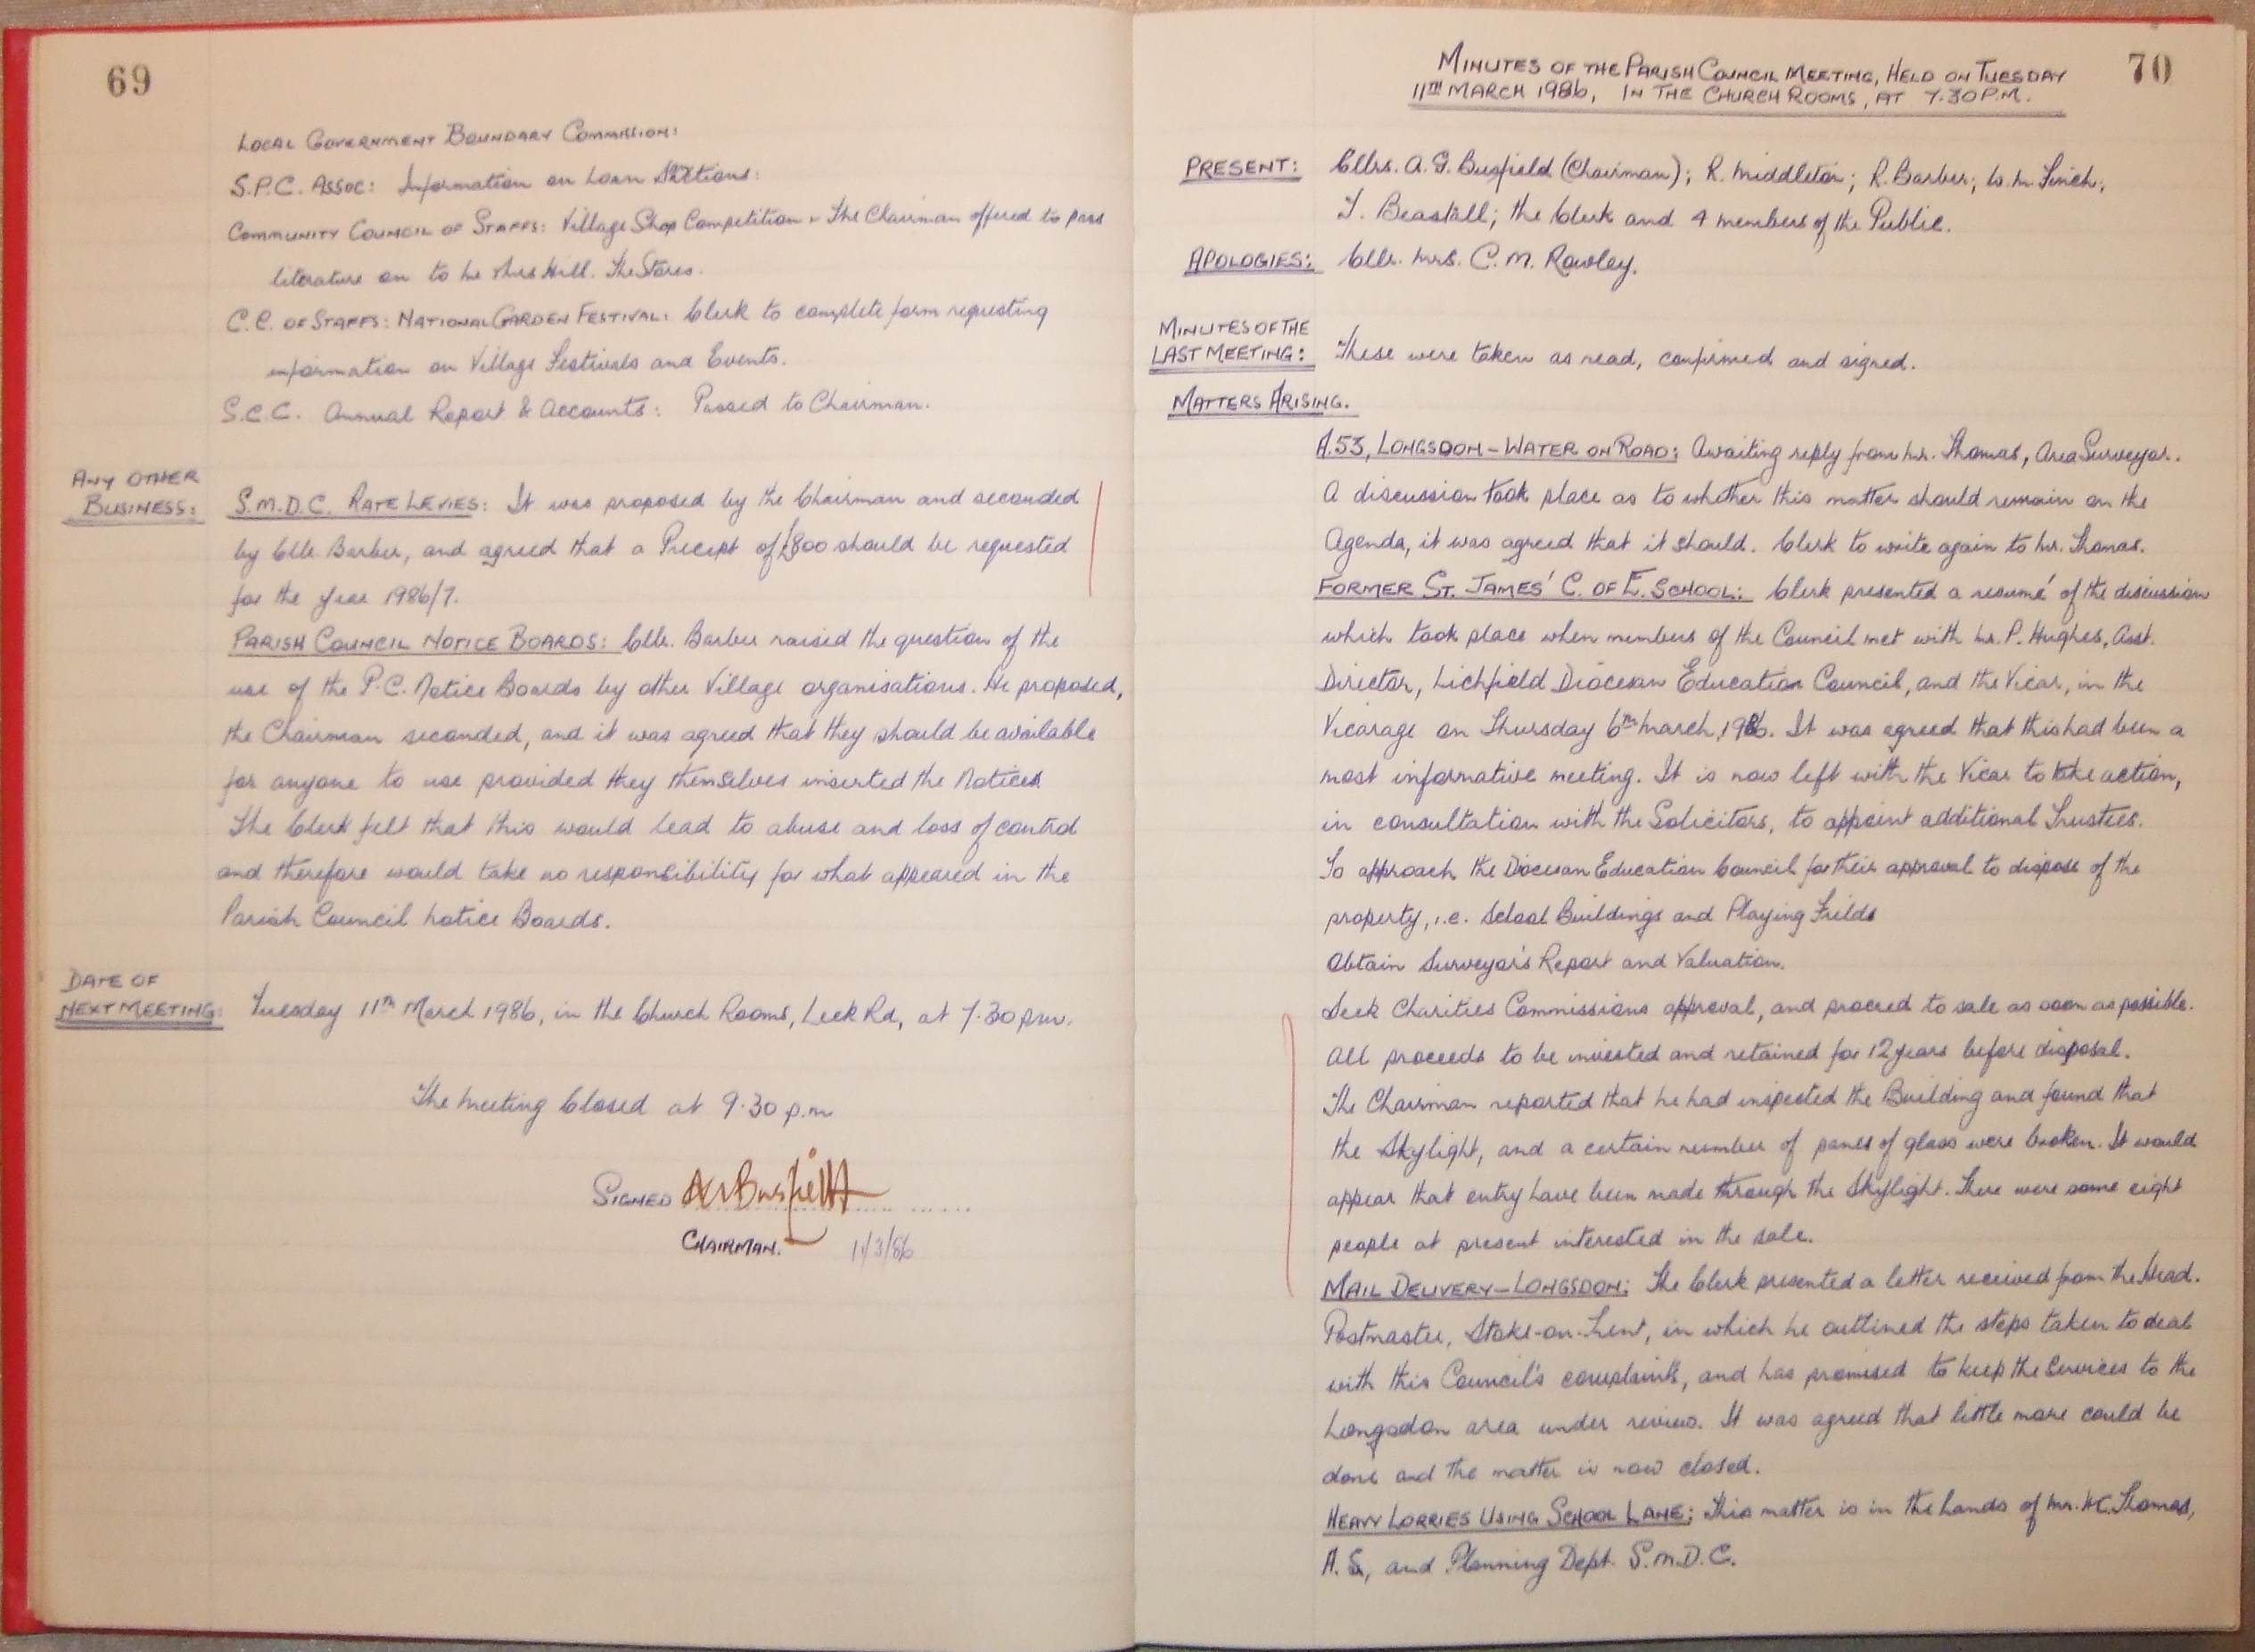 69
LOCAL GOVERNMENT BOUNDARY COMMISSION:
S.P.C. ASSOC: Information on Loan
COMMUNITY COUNCIL OF STAFFS: Village Shop Competition - The Chairman offered to pass
literature on to Mrs Hill. The Stores.
C.C. OF STAFFS: NATIONAL GARDEN FESTIVAL: Clerk to complete form requesting
information on Village Festivals and Events.
S.C.C. Annual Report & Accounts: Passed to Chairman.
ANY OTHER
BUSINESS:
S.M.D.C. RATE LEVIES: It was proposed by the Chairman and seconded
by Cllr. Barber, and agreed that a Precept of £800 should be requested
for the year 1986/7.
PARISH COUNCIL NOTICE BOARDS: Cllr. Barber raised the question of the
use of the P.C. Notice Boards by other Village organisations. He proposed,
the Chairman seconded, and it was agreed that they should be available
for anyone to use provided they themselves inserted the Notices
The Clerk felt that this would lead to abuse and loss of control
and therefore would take no responsibility for what appeared in the
Parish Council Notice Boards.
DATE OF
NEXT MEETING: Tuesday 11th March 1986, in the Church Rooms, Leek Rd, at 7.30 p.m.
The Meeting Closed at 9.30 p.m
SIGNED A G Busfield
CHAIRMAN. 11/3/86
70
MINUTES OF THE PARISH COUNCIL MEETING, HELD ON TUESDAY
11TH MARCH 1986, IN THE CHURCH ROOMS, AT 7.30 P.M.
PRESENT: Cllrs. A.G. Busfield (Chairman); R. Middleton; R. Barber; W.M. Finch;
T. Beastall; the Clerk and 4 members of the Public.
APOLOGIES: Cllr. Mrs. C.M. Rowley.
MINUTES OF THE
LAST MEETING: These were taken as read, confirmed and signed.
MATTERS ARISING.
A.53, LONGSDON - WATER ON ROAD: Awaiting reply from Mr. Thomas, Area Surveyor.
A discussion took place as to whether this matter should remain on the
Agenda, it was agreed that it should. Clerk to write again to Mr. Thomas.
FORMER ST. JAMES' C. OF E. SCHOOL: Clerk presented a resumé of the discussion
which took place when members of the Council met with Mr. P. Hughes, Asst.
Director, Lichfield Diocesan Education Council, and the Vicar, in the
Vicarage on Thursday 6th March, 1986. It was agreed that this had been a
most informative meeting. It is now left with the Vicar to take action,
in consultation with the Solicitors, to appoint additional Trustees.
To approach the Diocesan Education Council for their approval to dispose of the
property, i.e. School Buildings and Playing Fields
Obtain Surveyor's Report and Valuation.
Seek Charities Commissions approval, and proceed to sale as soon as possible.
All proceeds to be invested and retained for 12 years before disposal.
The Chairman reported that he had inspected the Building and found that
the Skylight, and a certain number of panes of glass were broken. It would
appear that entry have been made through the Skylight. There were some eight
people at present interested in the sale.
MAIL DELIVERY - LONGSDON: The Clerk presented a letter received from the Head.
Postmaster, Stoke-on-Trent, in which he outlined the steps taken to deal
with this Council's complaints, and has promised to keep the Services to the
Longsdon area under review. It was agreed that little more could be
done and the matter is now closed.
HEAVY LORRIES USING SCHOOL LANE: This matter is in the hands of Mr. H.C. Thomas,
A.S., and Planning Dept. S.M.D.C.